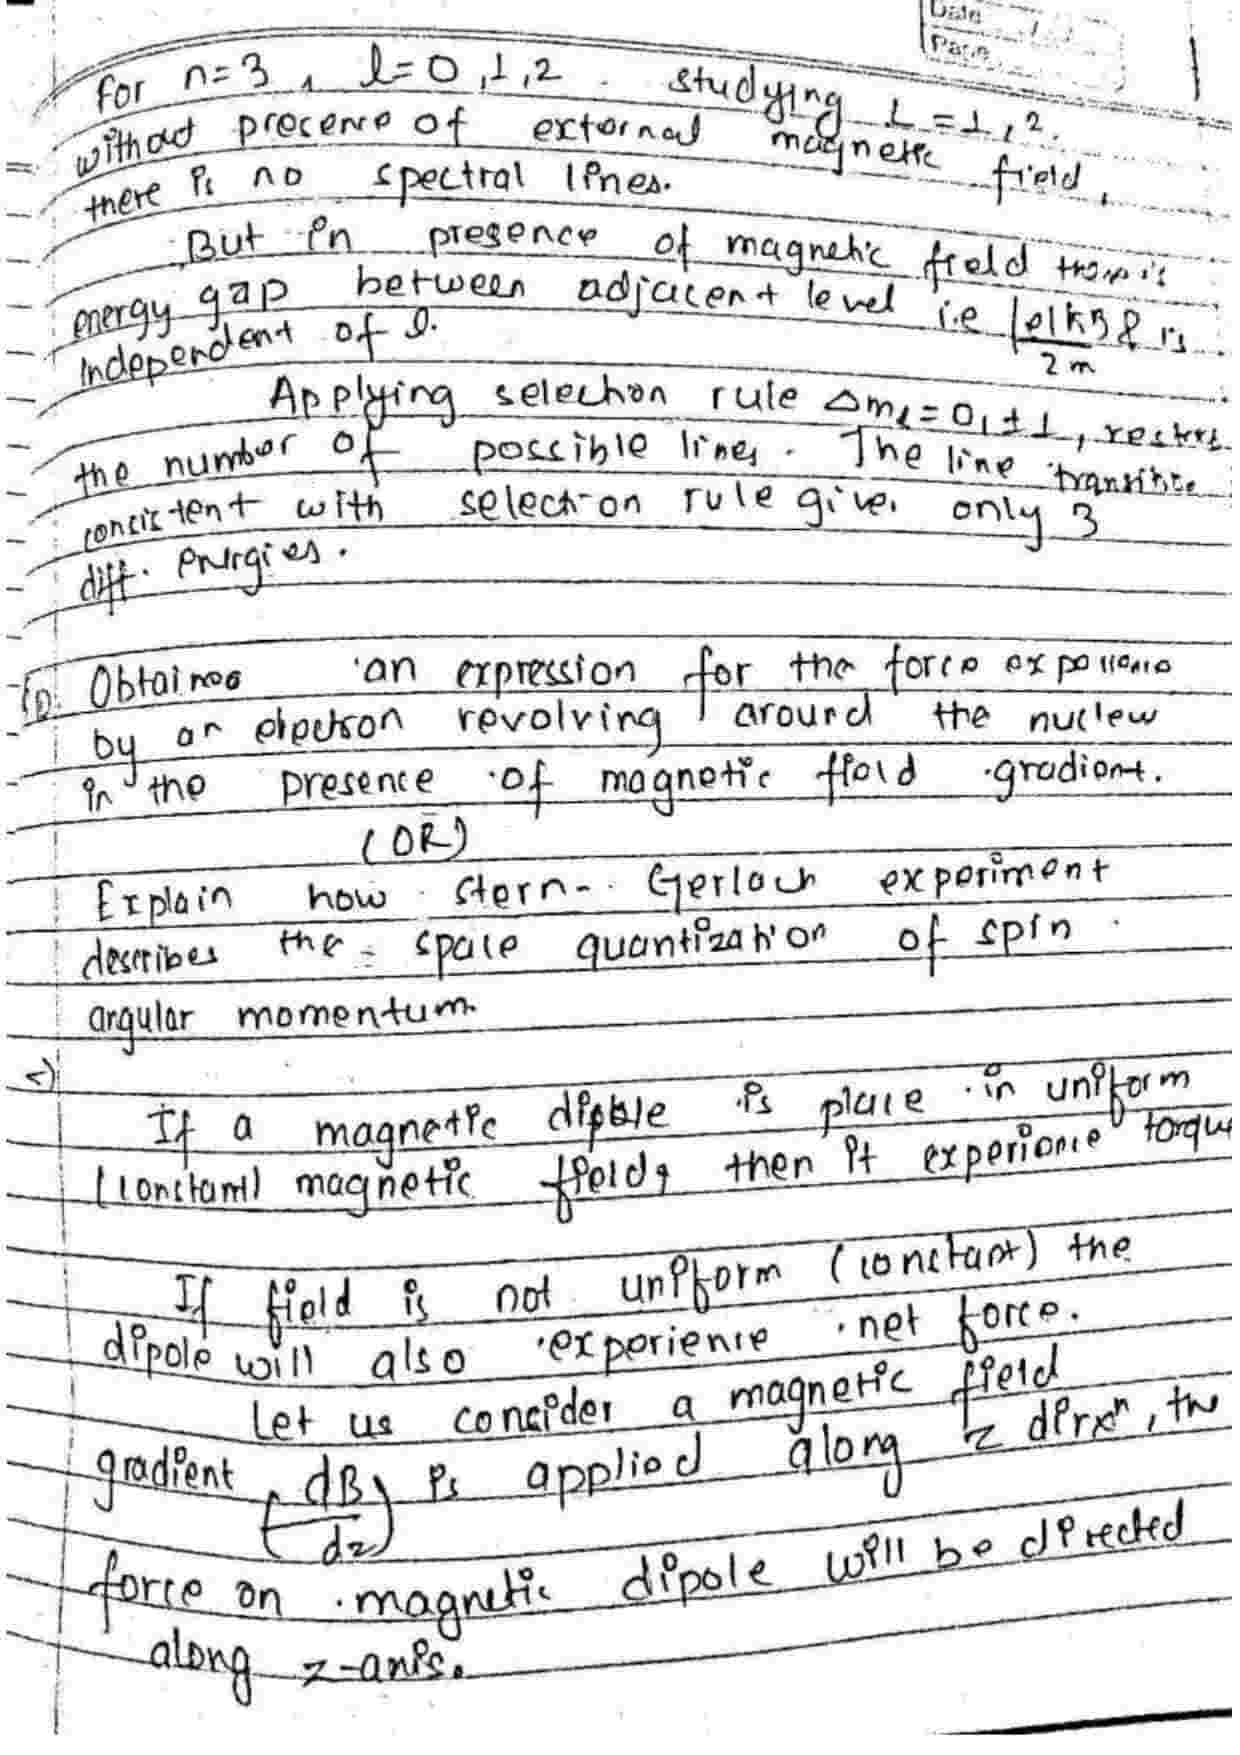 Date
Page
for n=3, l=0,1,2. studying L=1,2.
without presence of external magnetic field,
there is no spectral lines.
But in presence of magnetic field there is
energy gap between adjacent level i.e |e|ħB/2m & is
independent of l.
Applying selection rule Δm_l=0,±1, restrs
the number of possible lines. The line transition
consistent with selection rule gives only 3
diff. energies.
Obtain an expression for the force experience
by an electron revolving around the nucleu
in the presence of magnetic field gradient.
(OR)
Explain how Stern-Gerlach experiment
describes the space quantization of spin
angular momentum.
=>
If a magnetic dipole is place in uniform
(constant) magnetic field, then it experience torque
If field is not uniform (constant) the
dipole will also experience net force.
Let us consider a magnetic field
gradient (dB/dz) is applied along z dirxn, the
force on magnetic dipole will be directed
along z-axis.